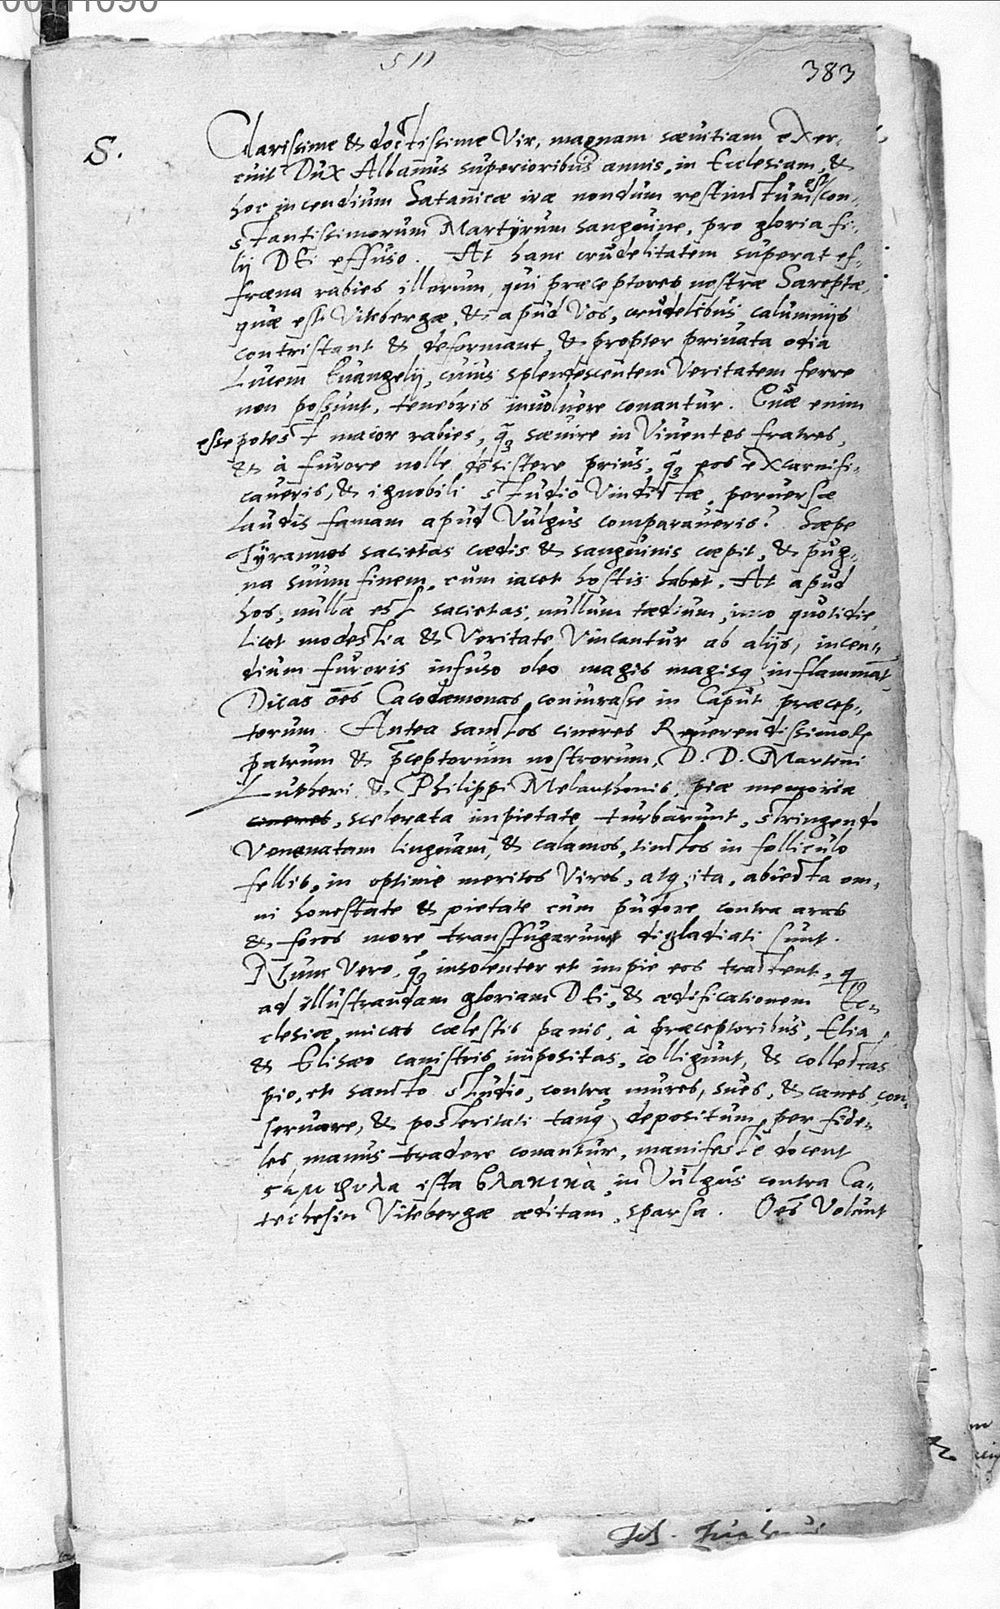 511
383
S.
Clarissime & doctissime Vir, magnam sæuitiam exer-
cuit Dux Albanus superioribus annis, in Ecclesiam, &
hoc incendium Satanicæ iræ nondum restinctum est con-
stantissimorum Martyrum sanguine, pro gloria fi-
lij DEi effuso. At hanc crudelitatem superat ef-
fræna rabies illorum, qui præceptores nostræ Sareptæ,
quæ est Vitebergæ, & apud Vos, crudelibus calumnijs
contristant & deformant, & propter priuata odia
Lucem Euangelij, cuius splendescentem Veritatem ferre
non possunt, tenebris inuoluere conantur. Quæ enim
esse potest maior rabies, q̃ȝ sæuire in Viuentes fratres,
& à furore nolle desistere prius, q̃ȝ eos excarnifi-
caueris, & ignobili studio Vindictæ, peruersæ
laudis famam apud Vulgus comparaueris? Sæpe
Tyrannos sacietas cædis & sanguinis cœpit, & pug-
na suum finem, cum iacet hostis habet. At apud
hos, nulla est sacietas, nullum tædium, imo quotidie,
licet modestia & Veritate Vincantur ab alijs, incen-
dium furoris infuso oleo magis magisq; inflammat.
Dicas oēs Cacodæmonas coniurasse in Caput præcep-
torum. Antea sanctos cineres Reuerendissimoꝝ
patrum & p̄ceptorum nostrorum, D. D. Martini
Lutheri & Philippi Melanthonis, piæ memoria
cineres, scelerata impietate turbarunt, stringendo
Venenatam linguam, & calamos, tinctos in folliculo
fellis, in optime meritos Viros, atq; ita, abiecta om-
ni honestate & pietate cum pudore contra aras
& focos more transfugarum digladiati sunt.
Nunc Vero, q̃ȝ insolenter et impiè eos tractent, q
ad illustrandam gloriam DEi, & ædificationem Ec-
clesiæ, micas cælestis panis, à præceptoribus, Elia
& Elisæo canistris impositas, colligunt, & collectas
pio, et sancto studio, contra mures, sues, & canes con-
seruare, & posteritati tanq̃ȝ depositum, per fide-
les manus tradere conantur, manifestè docent
σύμφυλα ista βλακικὰ, in Vulgus contra Ca-
techesin Vitebergæ æditam, sparsa. Oēs Volunt